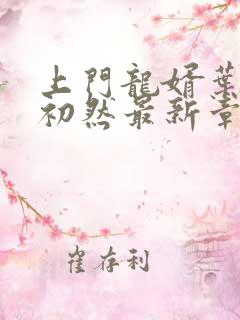 上門龍婿葉
初然最新章
崔存利